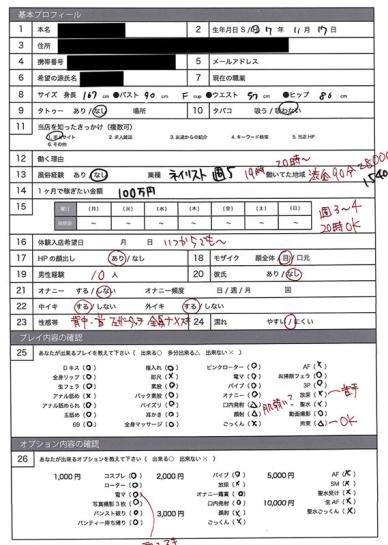 基本プロフィール
1 本名 2 生年月日 S/H 年 11月 17日
3 住所
4 携帯番号 5 メールアドレス
6 希望の源氏名 7 現在の職業
8 サイズ 身長 167 cm ●バスト 90 cm F cup ●ウエスト 57 cm ●ヒップ 86 cm
9 タトゥー あり/なし 場所 10 タバコ 吸う/吸わない
11 当店を知ったきっかけ(複数可)
1.求人サイト 2.求人雑誌 3.お友達からの紹介 4.キーワード検索 5.当店HP
6.その他
12 働く理由
13 風俗経験 あり/なし 業種 ネイリスト 週5 19時 20時〜 働いてた地域 渋谷 90分
14 1ヶ月で稼ぎたい金額 100万円
15 曜日 (月) (火) (水) (木) (金) (土) (日)
〜 〜 〜 〜 〜 〜 〜
週3〜4
20時OK
16 体験入店希望日 月 日 いつからでも〜
17 HPの顔出し あり/なし 18 モザイク 顔全体/目/口元
19 男性経験 10 人 20 彼氏 あり/なし
21 オナニー する/しない オナニー頻度 日/週/月 回
22 中イキ する/しない 外イキ する/しない
23 性感帯 背中 フェザータッチ 24 濡れ やすい/にくい
プレイ内容の確認
25 あなたが出来るプレイを教えて下さい(出来る○ 多分出来る△ 出来ない×)
Dキス(○) 指入れ(○) ピンクローター(○) AF(×)
全身リップ(○) 即尺(×) 電マ(○) お掃除フェラ(○)
生フェラ(○) 素股(○) バイブ(○) 3P(○)
アナル舐め(×) バック素股(○) オナニー(○) 放尿(×) 苦手
アナル舐められ(○) パイズリ(○) 口内発射(△) 聖水(×)
玉舐め(○) 耳かき(○) 顔射(△) 肌弱い? 動画撮影(○)
69(○) 全身マッサージ(○) ごっくん(×) 拘束(△) OK
オプション内容の確認
26 あなたが出来るオプションを教えて下さい(出来る○ 多分出来る△ 出来ない×)
1,000円 コスプレ(○) 2,000円 バイブ(○) 5,000円 AF(×)
ローター(○) 放尿(×) SM(×)
電マ(○) オナニー鑑賞(○) 聖水受け(×)
写真撮影3枚(○) 口内発射(○) 10,000円 生AF(×)
パンスト破り(○) 3,000円 顔射(×) 聖水ごっくん(×)
パンティー持ち帰り(○) ごっくん(×)